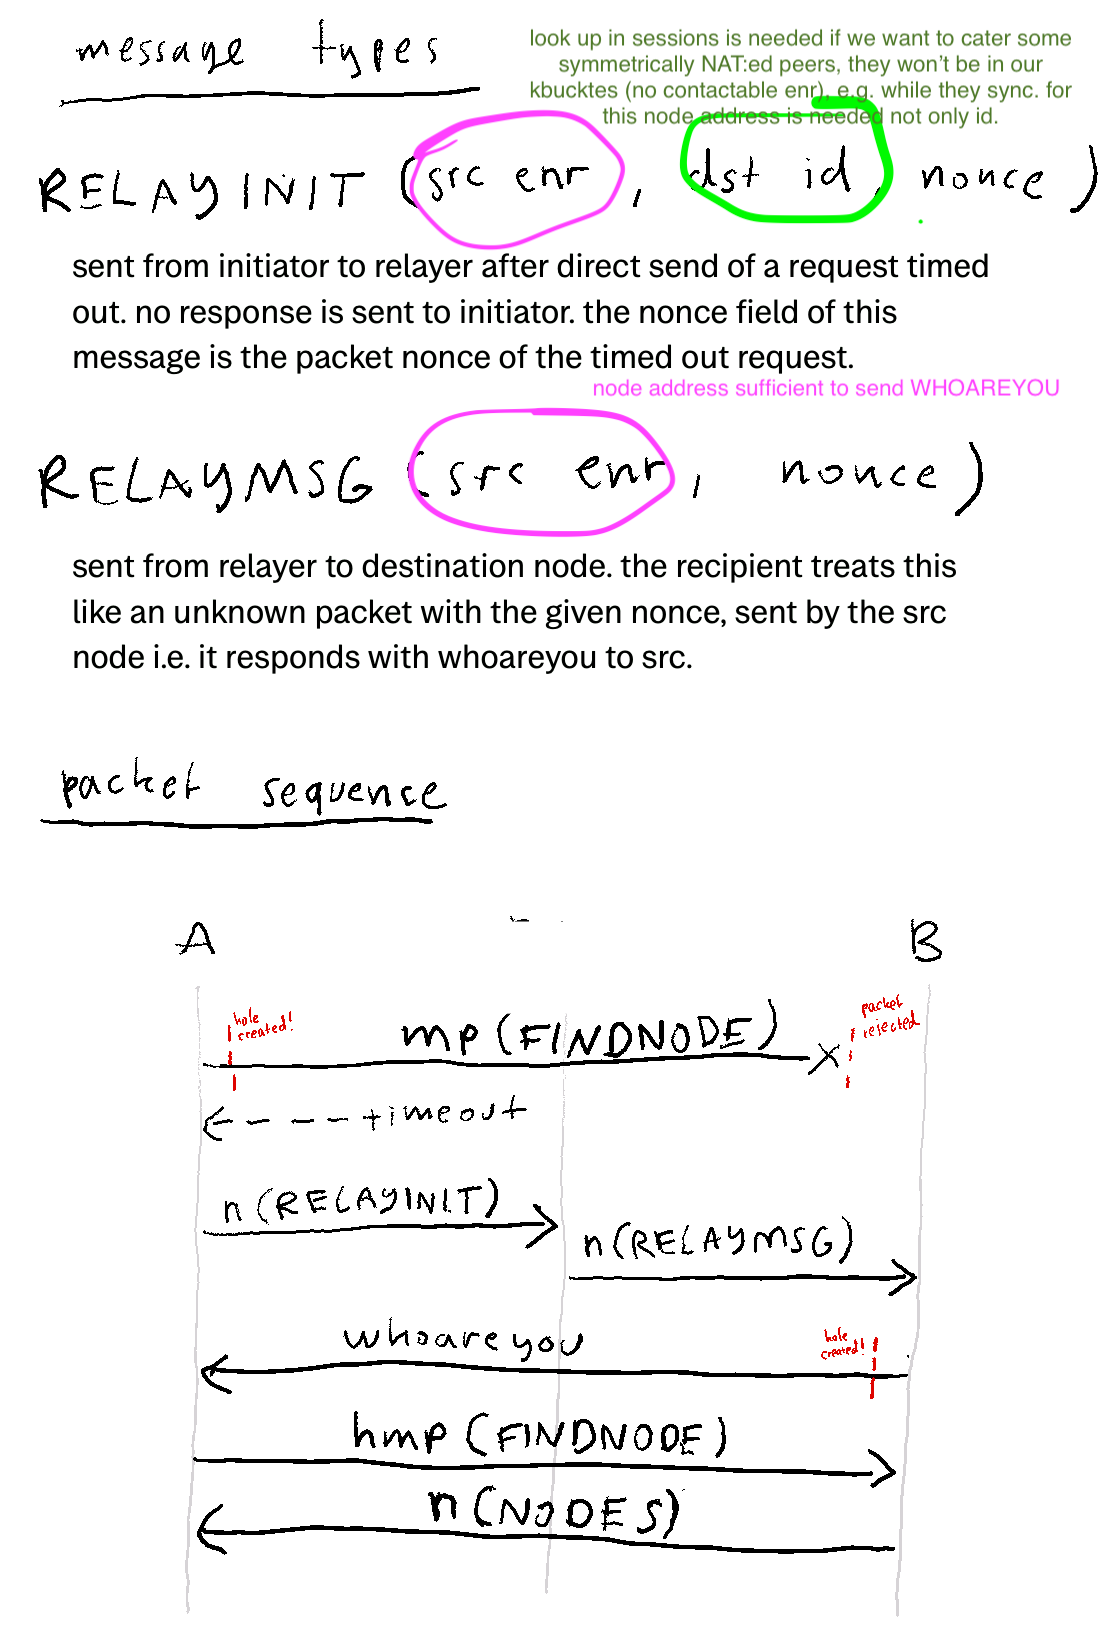 message types
look up in sessions is needed if we want to cater some
symmetrically NAT:ed peers, they won't be in our
kbucktes (no contactable enr), e.g. while they sync. for
this node address is needed not only id.
RELAYINIT (src enr, dst id, nonce)
sent from initiator to relayer after direct send of a request timed
out. no response is sent to initiator. the nonce field of this
message is the packet nonce of the timed out request.
node address sufficient to send WHOAREYOU
RELAYMSG (src enr, nonce)
sent from relayer to destination node. the recipient treats this
like an unknown packet with the given nonce, sent by the src
node i.e. it responds with whoareyou to src.
packet sequence
A
B
hole
created!
mp (FINDNODE)
packet
rejected
timeout
n (RELAYINIT)
n (RELAYMSG)
whoareyou
hole
created!
hmp (FINDNODE)
n (NODES)